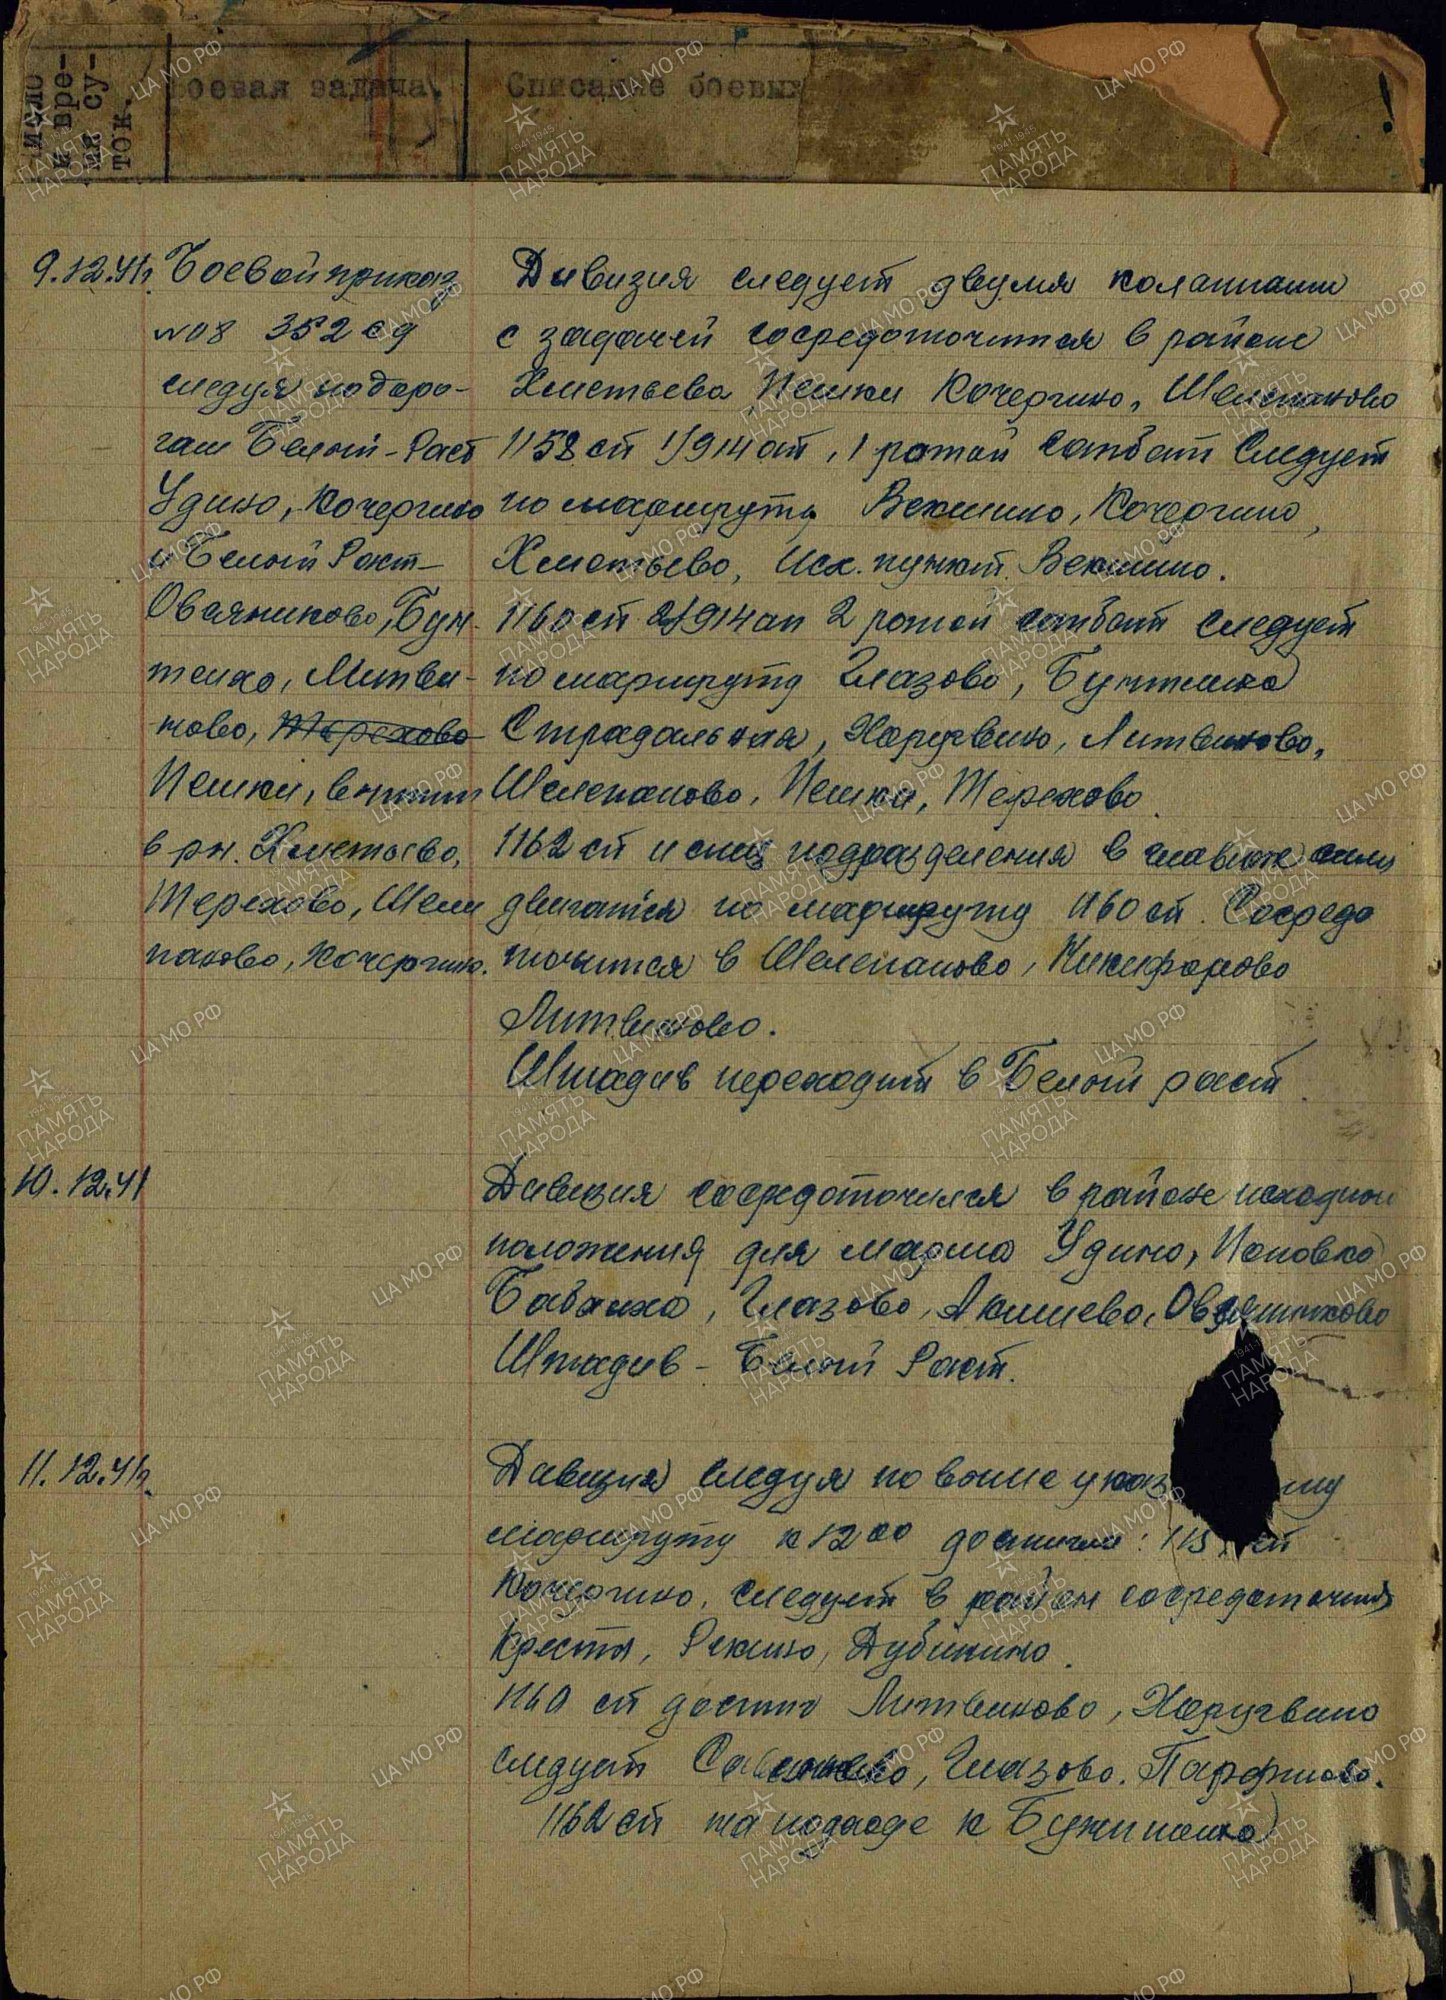 число и вре- мя су- ток.
Боевая задача.
Списание боевых
9.12.41г.
Боевой приказ
№08 352 сд
следуя по доро-
гам Белый-Раст
Удино, Кочергино
и Белый Раст-
Овсяниково, Бун-
тиха, Литви-
ново, Терехово
Пешки, выйти
в рн. Хметьево,
Терехово, Шели
паново, Кочергино.
Дивизия следует двумя колоннами
с задачей сосредоточится в районе
Хметьево Пешки Кочергино, Шелепаново
1158 сп 1/914 ап, 1 ротой санбат следует
по маршруту Векшино, Кочергино,
Хметьево, Исх. пункт Векшино.
1160 сп 2/914 ап 2 ротой санбат следует
по маршруту Глазово, Бунтиха
Страдальная, Хоругвино, Литвиново,
Шелепаново, Пешки, Терехово.
1162 сп и спец подразделения в главне силы
двигатся по маршруту 1160 сп. Сосредо
точится в Шелепаново, Никифорово
Литвиново.
Штадив переходит в Белый раст
10.12.41
Дивизия сосредоточился в районе исходном
положения для марша Удино, Поповка
Бабаиха, Глазово, Акишево, Овсянниково
Штадив - Белый Раст.
11.12.41г.
Дивизия следуя по выше указ му
маршруту к 12 00 достигла: 115 сп
Кочергино, следует в район сосредоточия
Кресты, Рекино, Дубинино.
1160 сп достиг Литвиново, Хоругвино
следует Савельево, Глазово. Парфеново.
1162 сп на подходе к Бунтиха
ЦА МО РФ
1941-1945
ПАМЯТЬ
НАРОДА